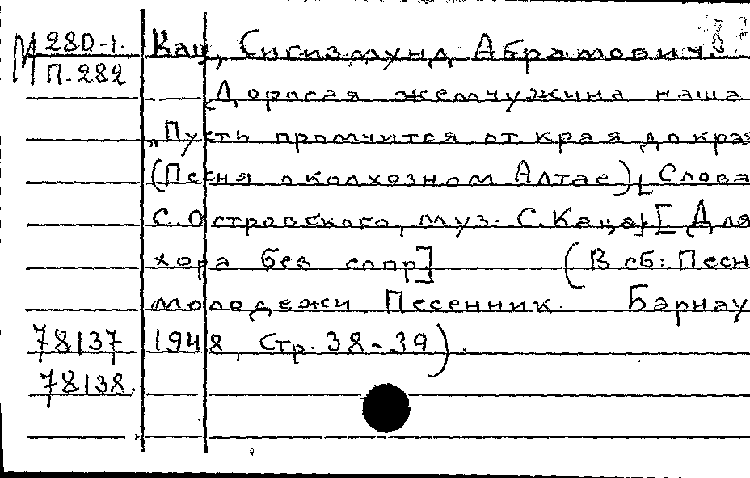 М 280-1. Кац, Сигизмунд Абрамович.
П-282
Дорогая жемчужина наша
"Пусть промчится от края до края
(Песня о колхозном Алтае). Слова
С. Островского, муз. С. Каца. [Для
хора без сопр] (В сб: Песн
молодежи Песенник. Барнау
78137 1948 Стр. 38-39).
78138.